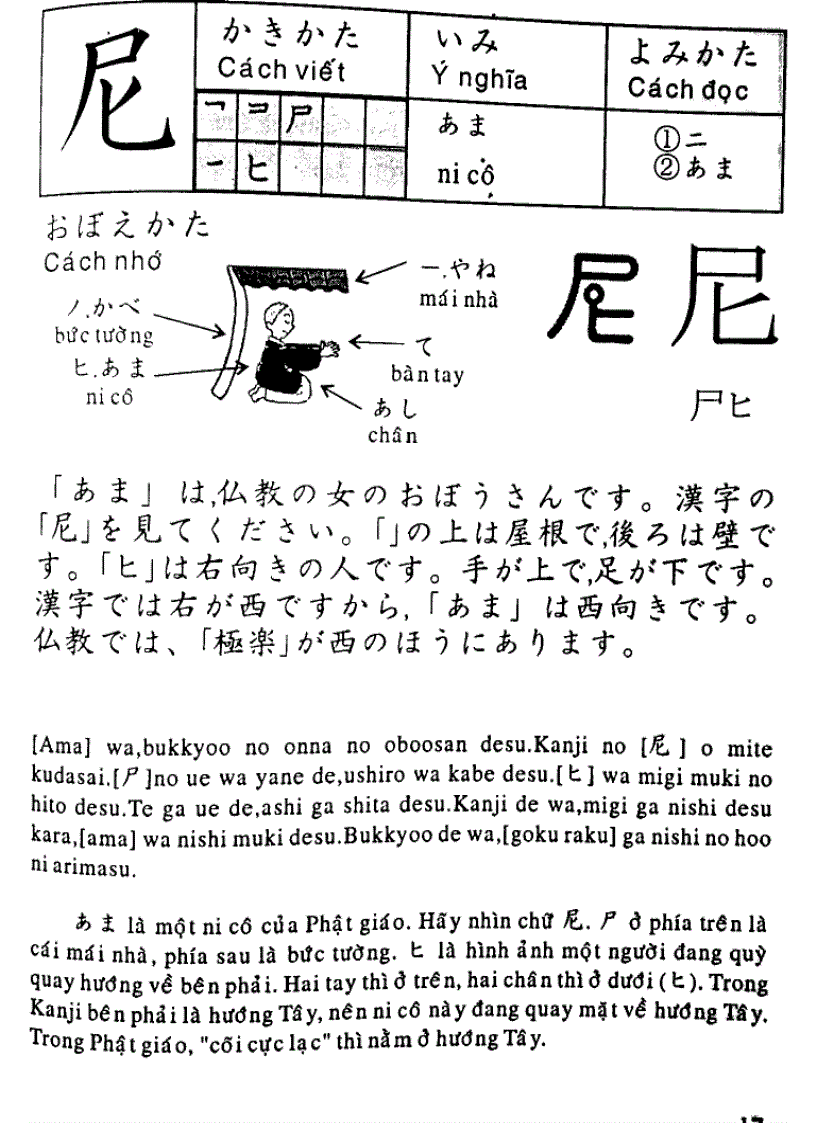 尼
かきかた
Cách viết
いみ
Ý nghĩa
よみかた
Cách đọc
あま
ni cô
①ニ
②あま
おぼえかた
Cách nhớ
ノ.かべ
bức tường
ヒ.あま
ni cô
一.やね
mái nhà
て
bàn tay
あし
chân
尼
尸ヒ
「あま」は,仏教の女のおぼうさんです。漢字の
「尼」を見てください。「」の上は屋根で,後ろは壁で
す。「ヒ」は右向きの人です。手が上で,足が下です。
漢字では右が西ですから,「あま」は西向きです。
仏教では、「極楽」が西のほうにあります。
[Ama] wa,bukkyoo no onna no oboosan desu.Kanji no [尼] o mite
kudasai.[尸]no ue wa yane de,ushiro wa kabe desu.[ヒ] wa migi muki no
hito desu.Te ga ue de,ashi ga shita desu.Kanji de wa,migi ga nishi desu
kara,[ama] wa nishi muki desu.Bukkyoo de wa,[goku raku] ga nishi no hoo
ni arimasu.
あま là một ni cô của Phật giáo. Hãy nhìn chữ 尼. 尸 ở phía trên là
cái mái nhà, phía sau là bức tường. ヒ là hình ảnh một người đang quỳ
quay hướng về bên phải. Hai tay thì ở trên, hai chân thì ở dưới (ヒ). Trong
Kanji bên phải là hướng Tây, nên ni cô này đang quay mặt về hướng Tây.
Trong Phật giáo, "cõi cực lạc" thì nằm ở hướng Tây.